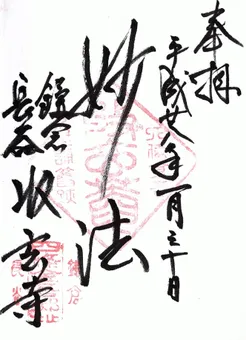 奉拝
平成廿八年一月三十日
妙法
鎌倉
長谷 収玄寺